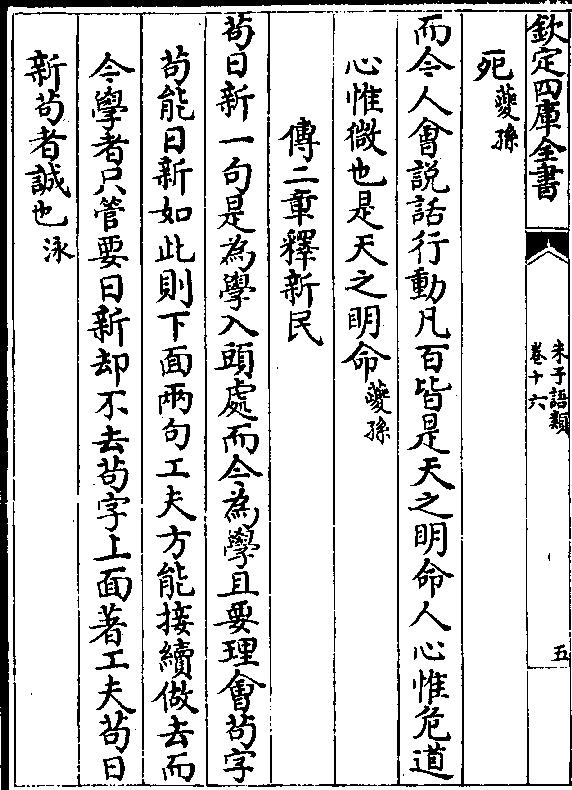 欽定四庫全書
朱子語類
卷十六
五
死夔孫
而今人會説話行動凡百皆是天之明命人心惟危道
心惟微也是天之明命夔孫
傳二章釋新民
苟日新一句是為學入頭處而今為學且要理會苟字
苟能日新如此則下面兩句工夫方能接續做去而
今學者只管要日新却不去苟字上面著工夫苟日
新苟者誠也泳